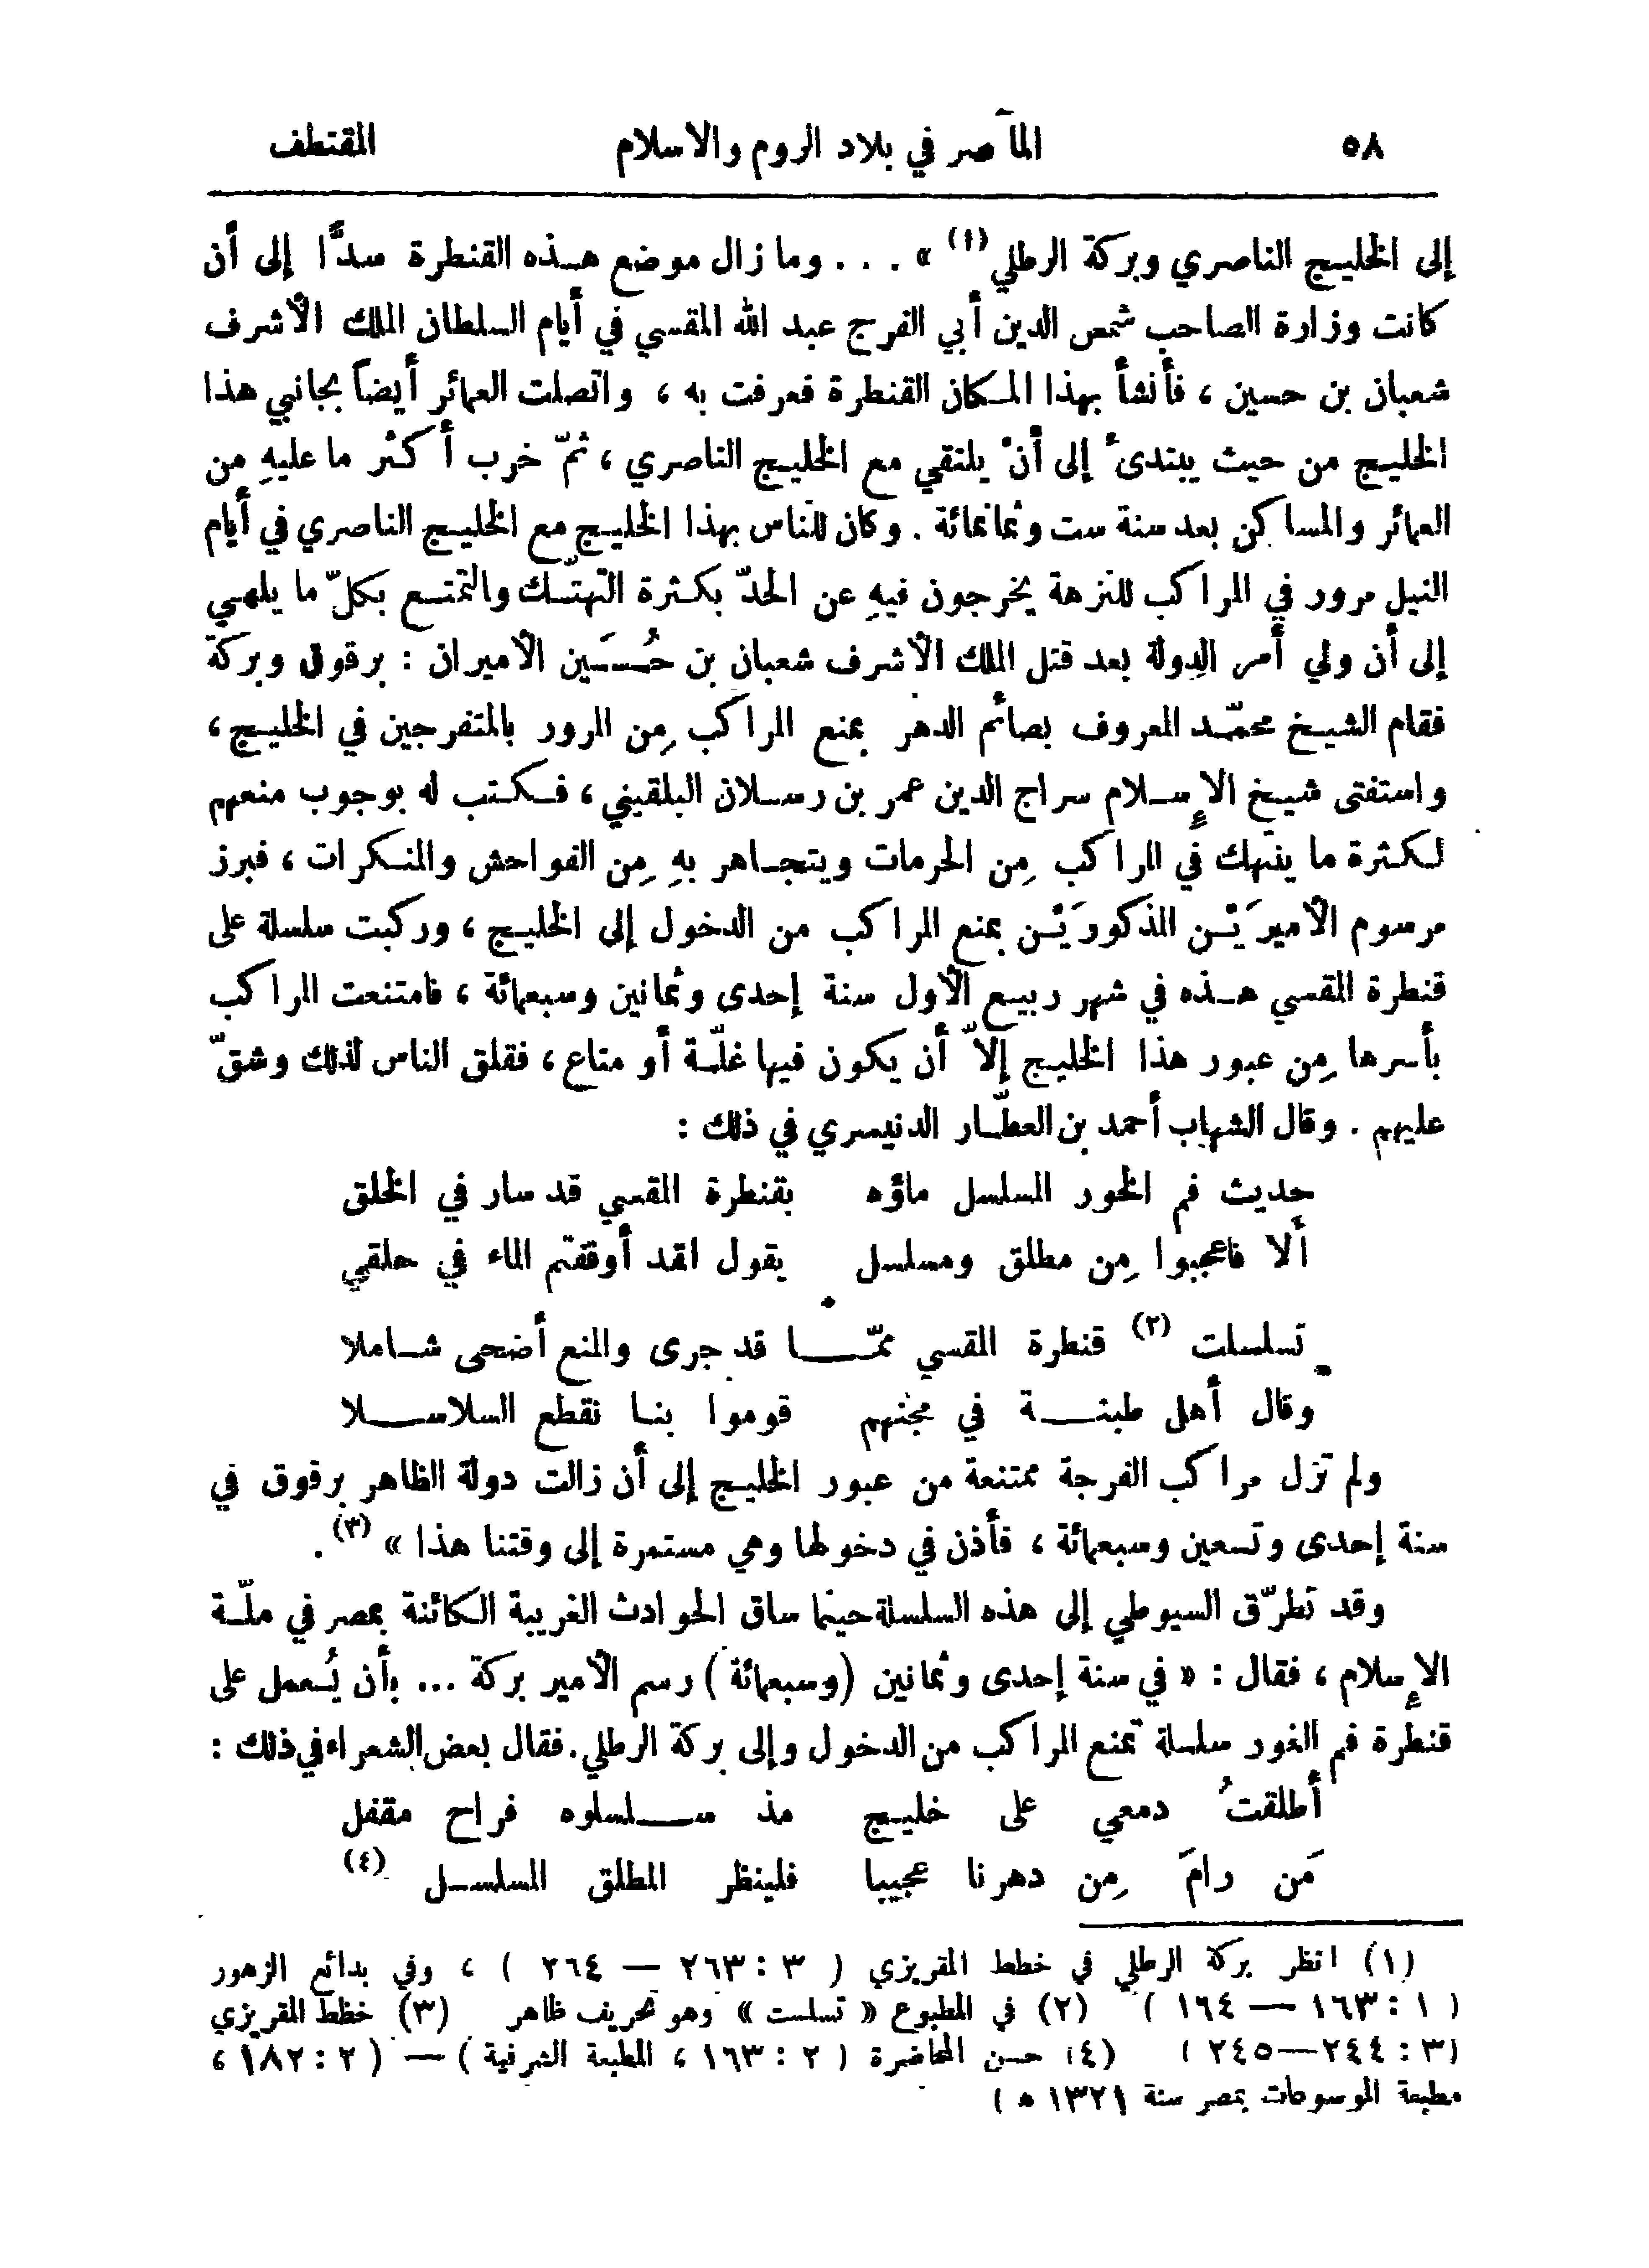 ٥٨ المآصر في بلاد الروم والاسلام المقتطف
إلى الخليج الناصري وبركة الرطلي (١) » . . . وما زال موضع هذه القنطرة سدًّا إلى أن
كانت وزارة الصاحب شمس الدين أبي الفرج عبد الله المقسي في أيام السلطان الملك الأشرف
شعبان بن حسين ، فأنشأ بهذا المكان القنطرة فعرفت به ، واتصلت العمائر أيضاً بجانبي هذا
الخليج من حيث يبتدىء إلى أنْ يلتقي مع الخليج الناصري ، ثمّ خرب أكثر ما عليهِ من
العمائر والمساكن بعد سنة ست وثمانمائة . وكان للناس بهذا الخليج مع الخليج الناصري في أيام
النيل مرور في المراكب للنزهة يخرجون فيهِ عن الحدّ بكثرة التهتّك والتمتع بكلّ ما يلهي
إلى أن ولي أمر الدولة بعد قتل الملك الأشرف شعبان بن حُسَين الأميران : برقوق وبركة
فقام الشيخ محمّد المعروف بصائم الدهر بمنع المراكب مِن المرور بالمتفرجين في الخليج ،
واستفتى شيخ الإسلام سراج الدين عمر بن رسلان البلقيني ، فكتب له بوجوب منعهم
لكثرة ما ينتهك في المراكب مِن الحرمات ويتجاهر بهِ مِن الفواحش والمنكرات ، فبرز
مرسوم الأميرَيْن المذكورَيْن بمنع المراكب من الدخول إلى الخليج ، وركبت سلسلة على
قنطرة المقسي هذه في شهر ربيع الأول سنة إحدى وثمانين وسبعمائة ، فامتنعت المراكب
بأسرها مِن عبور هذا الخليج إلاّ أن يكون فيها غلّة أو متاع ، فقلق الناس لذلك وشقّ
عليهم . وقال الشهاب أحمد بن العطّار الدنيسري في ذلك :
حديث فم الخور المسلسل ماؤه بقنطرة المقسي قد سار في الخلق
ألا فاعجبوا مِن مطلق ومسلسل يقول لقد أوقفتم الماء في حلقي
تسلسلت (٢) قنطرة المقسي ممّا قد جرى والمنع أضحى شاملا
وقال أهل طبنة في مجنهم قوموا بنا نقطع السلاسلا
ولم تزل مراكب الفرجة ممتنعة من عبور الخليج إلى أن زالت دولة الظاهر برقوق في
سنة إحدى وتسعين وسبعمائة ، فأذن في دخولها وهي مستمرة إلى وقتنا هذا » (٣) .
وقد تطرّق السيوطي إلى هذه السلسلة حينما ساق الحوادث الغريبة الكائنة بمصر في ملّة
الإسلام ، فقال : « في سنة إحدى وثمانين (وسبعمائة) رسم الأمير بركة ... بأن يُعمل على
قنطرة فم الغور سلسلة تمنع المراكب من الدخول وإلى بركة الرطلي . فقال بعض الشعراء في ذلك :
أطلقتُ دمعي على خليج مذ سلسلوه فراح مقفل
مَن رامَ مِن دهرنا عجيبا فلينظر المطلق المسلسل (٤)
(١) انظر بركة الرطلي في خطط المقريزي ( ٣ : ٢٦٣ — ٢٦٤ ) ، وفي بدائع الزهور
( ١ : ١٦٣ — ١٦٤ ) (٢) في المطبوع « تسلست » وهو تحريف ظاهر (٣) خطط المقريزي
(٣ : ٢٤٤—٢٤٥ ) (٤) حسن المحاضرة ( ٢ : ١٦٣ ، المطبعة الشرفية ) — ( ٢ : ١٨٢ ،
مطبعة الموسوعات بمصر سنة ١٣٢١ ه )